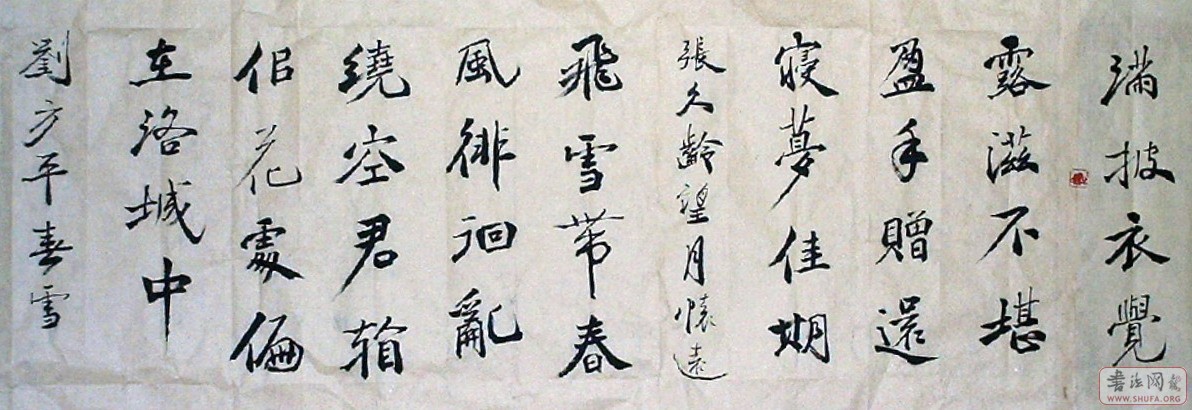 滿披衣覺
露滋不堪
盈手贈還
寢夢佳期
張久齡望月懷遠
飛雪帶春
風徘徊亂
繞空君看
佀花處偏
在洛城中
劉方平春雪
书法网
WWW.SHUFA.ORG